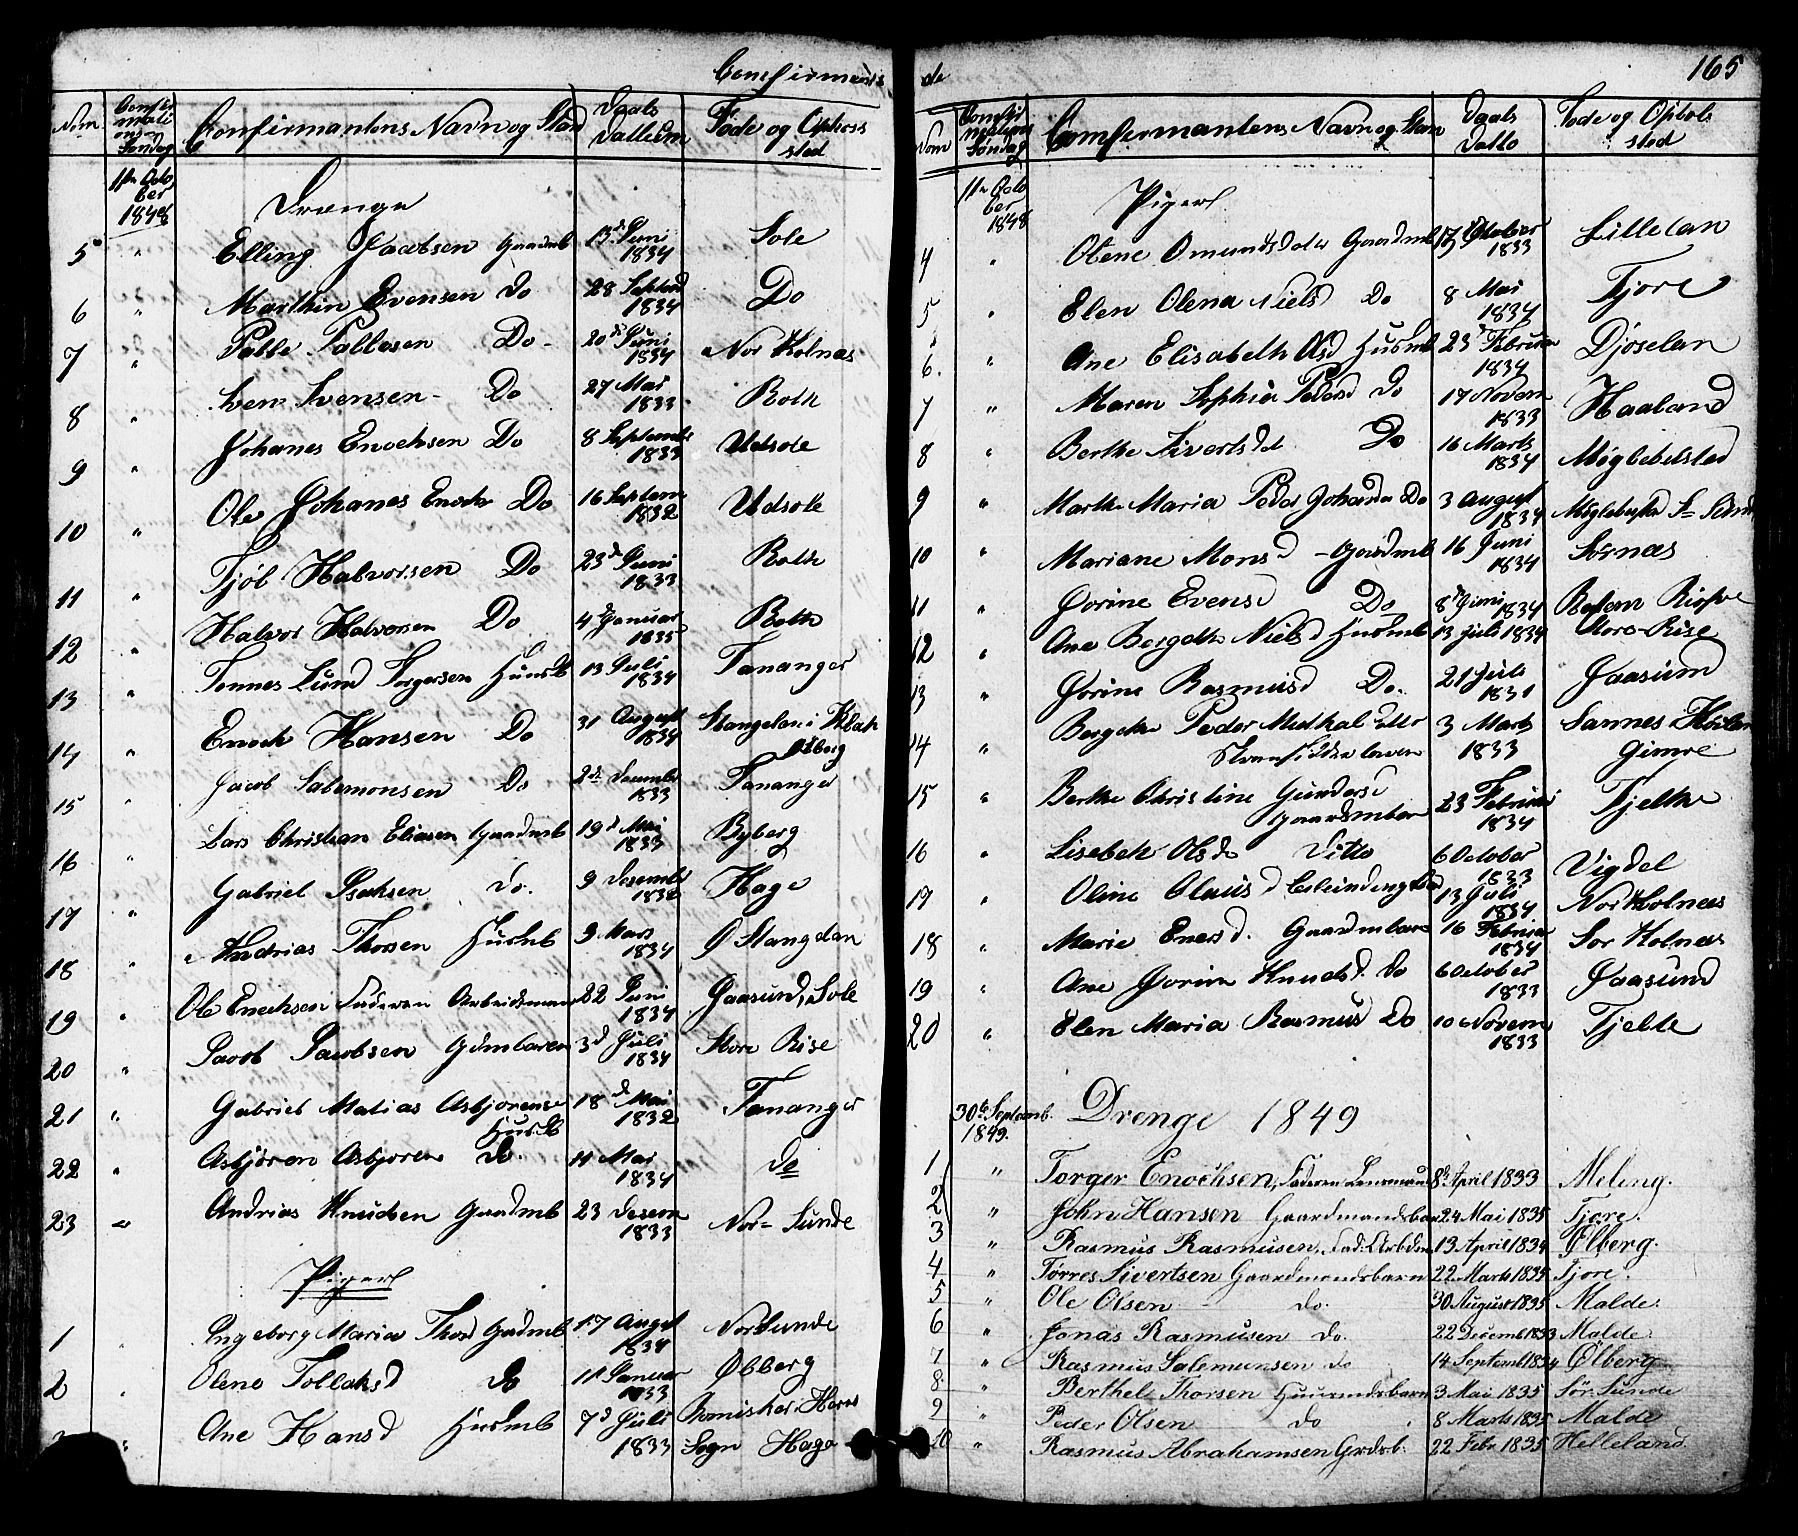 Confirmants
Nom. Confirmations Søndag Confirmantens Navn og Stand Daabs Dattum Føde og Ophols sted
11te Octo
ber
1848 Drenge
5 " Elling Jacobsen Gaardmb 13d Juni 1834 Sole
6 " Marthin Evensen Do 28 Septeb 1834 Do
7 " Palle Pallesen Do 20de Juni 1834 Nor Kolnæs
8 " Sven Svensen Do 27 Mai 1833 Roth
9 " Johanes Enochsen Do 8 Septembr 1833 Udsole
10 " Ole Johanes Enochs Do 16 Septem 1832 Udsole
11 " Tjøb Halvorsen Do 23d Juni 1833 Roth
12 " Halvor Halvorsen Do 4d Januar 1835 Roth
13 " Tønnes Lund Torgersen Husmb 13 Juli 1834 Tananger
14 " Enoch Hansen Do 31 August 1834 Stangelan i
15 " Jacob Salemonsen Do 2de December 1833 Tananger
16 " Lars Christian Eliasen Gaardmb 19d Mai 1833 Byberg
17 " Gabriel Isaksen do. 9 Desembr 1832 Hage
18 " Andrias Thorsen Husmb 9 Mars 1834 Ø Stangelan
19 " Ole Enochsen Faderen Arbeidsmand 22 Juni 1834 Gaasund, Sole
20 " Jacob Jacobsen Gdmbaren 3d Juli 1834 Store Rise
21 " Gabriel Matias Asbjørense Husmb 18d Mai 1832 Tananger
22 " Asbjøren Asbjoren Do. 11 Mai 1834 do
23 " Andrias Knudsen Gaadmb 23 Desem 1833 Nor-Sunde
Piger
1 Ingeborg Maria Thorsd Gadmb 17 Augst 1834 Norsunde
2 Olene Tollaksd Do 11 Januar 1833 Ølberg
" Ane Hansd Husmb 7d Juli 1833 Sogn Haga
de 165
Nom Confirmations Søndag Confirmantens Navn og Stan Daabs Datto Føde og Ophols sted
11te Octo
ber
1848 Piger
4 " Olene Omundsdater Gaardmb 13 October 1833 Lillelan
5 " Elen Olena Nielsd Do 8 Mai 1834 Tjore
6. " Ane Elisabeth Olsd Husmb 23d Februar 1834 Djøselan
7 " Maren Sophia Pedersd Do 17 Novem 1833 Haaland
8 " Berthe Sivertsdt Do 16 Marts 1834 Møglebelstad
9 " Marthe Maria Peder Johanda Do 3 august 1834
10 " Mariane Monsd Gaardmb 16 Juni 1834 Sørnæs
11 " Jorine Evensd Do 8d Juni 1834
12 " Ane Bergethe Nielsd Husmb 13 juli 1834 Store-Rise
13 " Jorine Rasmusd Do. 21 Juli 1831 Jaasund
14 " Bergethe Peder 3 Marts 1833 Sannes
Gimre
15 " Berthe Christine Gundersd Gaardmbar 23 Februar 1834 Tjelthe
16 " Lisebeth Olsda Ditto 6 October 1833 Vigdel
19 " Oline Olausd 13 Juli 1834 Nor Kolnæs
18 " Marie Enersd. Gaardmbarn 16 Februar 1834 Sør Kolnæs
19 " Ane Jorine Knudsd. Do 6 October 1833 Jaasund
20 " Elen Maria Rasmus Do 10 Novem 1833 Tjelte
30te Septemb.
1849. Drenge 1849
1 " Torger Enochsen, Faderen Lensmand 8de April 1833 Meling.
2 " John Hansen Gaardmandsbarn 24 Mai 1835 Tjore.
3 " Rasmus Rasmusen, Fad. Arbdsm 13 April 1834 Ølberg.
4 " Tørres Sivertsen Gaardmandsbarn 22 Marts 1835 Tjore.
5 " Ole Olsen do. 30 August 1835 Malde.
6 " Jonas Rasmusen do. 22 Decemb 1833 Malde.
7 " Rasmus Salemunsen do 14 Septemb 1834 Ølberg
8 " Berthel Thorsen Huusmdsbarn 3 Mai 1835 Sør. Sunde
9 " Peder Olsen do 8 Marts 1835 Malde
10 " Rasmus Abrahamsen Grdsb. 22 Febr 1835 Helleland.